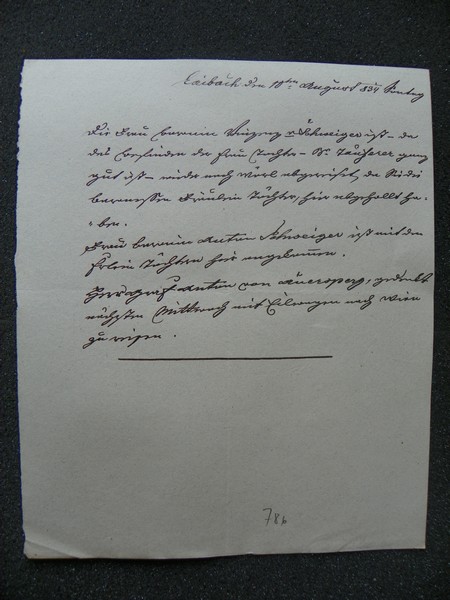 Laibach den 10ten August 834 Sontag
Die Frau Baronin Schweiger ist – da
das befinden der Frau Tochter – v. Taufferer ganz
gut ist – wieder nach Wördl abgereiset, da Sie die
baronessen Fräulein Töchter, hier abgehollt ha-
ben.
Frau Baronin Anton Schweiger ist mit den
Frlein Töchtern hier angekommen.
Herr Graf Anton von Auersperg, gedenkt
nächsten Mittwoch mit Eilwagen nach Wien
zu reisen.
78